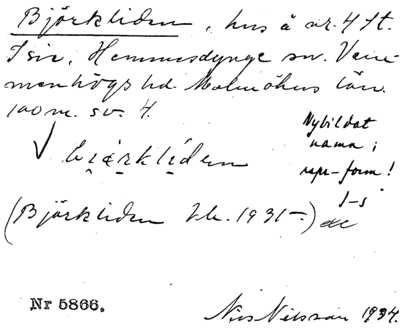 Björkliden, hus å nr. 4 St.
Isie, Hemmesdynge sn. Vem-
menhögs hd. Malmöhus län.
100 m. sv. 4.
Nybildat
namn i
repr-form!
(Björkliden 1931)
Nr 5866.
Nils Nilsson 1934.